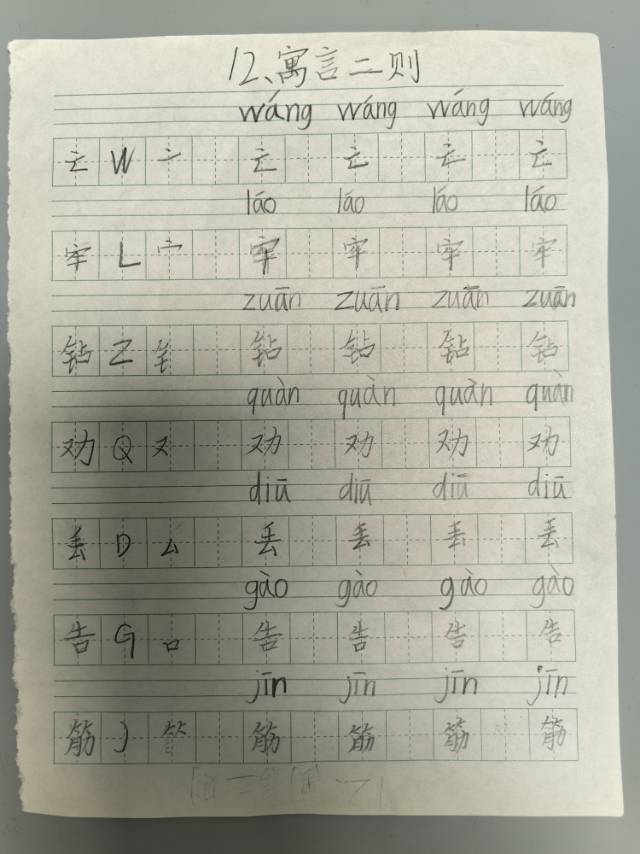 12、寓言二则
wáng wáng wáng wáng
亡 W 亠 亡 亡 亡 亡
láo láo láo láo
牢 L 宀 牢 牢 牢 牢
zuān zuān zuān zuān
钻 Z 钅 钻 钻 钻 钻
quàn quàn quàn quàn
劝 Q 又 劝 劝 劝 劝
diū diū diū diū
丢 D 厶 丢 丢 丢 丢
gào gào gào gào
告 G 口 告 告 告 告
jīn jīn jīn jīn
筋 J ⺮ 筋 筋 筋 筋